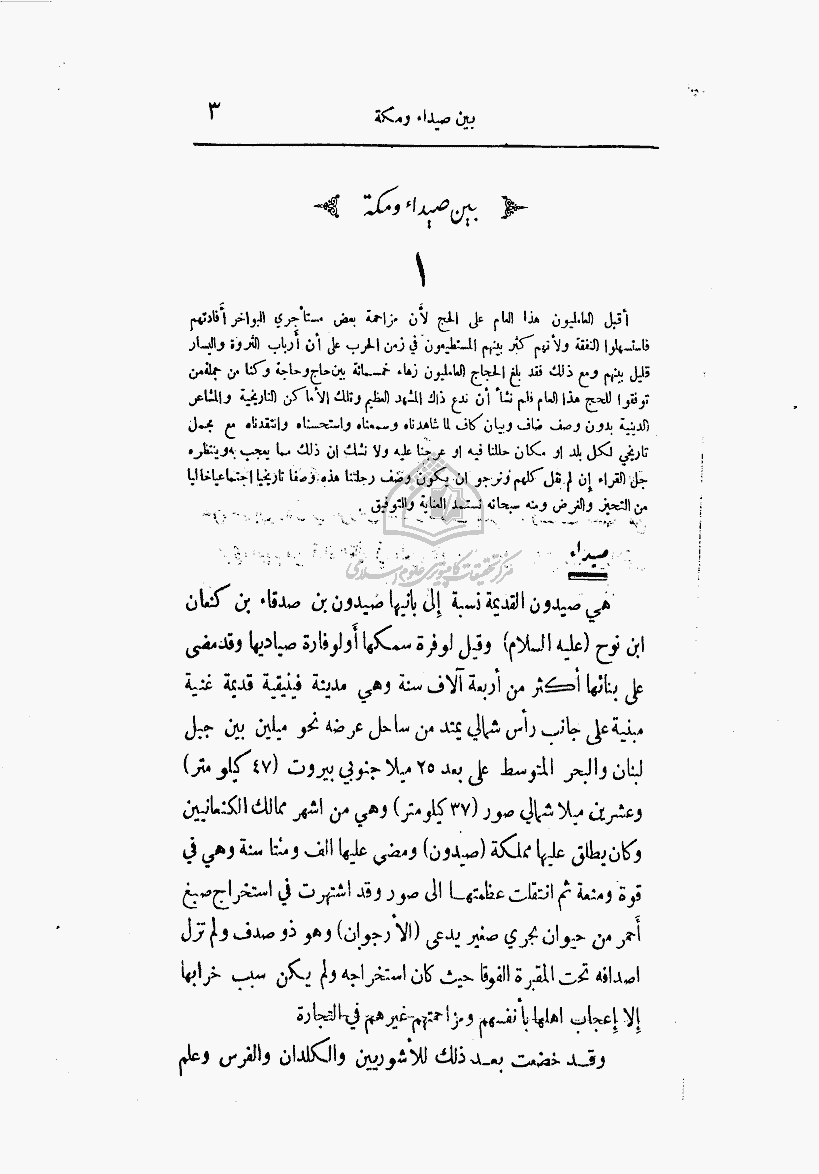 بين صيداء ومكة ٣
بين صيداء ومكة
١
أقبل العامليون هذا العام على الحج لأن مزاحمة بعض مستأجري البواخر أفادتهم
فاستسهلوا النفقة ولأنهم كثر بينهم المستطيعون في زمن الحرب على أن أرباب الثروة واليسار
قليل بينهم ومع ذلك فقد بلغ الحجاج العامليون زهاء خمسمائة بين حاج وحاجة وكنا من جملة من
توفقوا للحج هذا العام فلم نشأ أن ندع ذاك المشهد العظيم وتلك الأماكن التاريخية والمشاعر
الدينية بدون وصف ضاف وبيان كاف لما شاهدناه وسمعناه واستحسناه وانتقدناه مع مجمل
تاريخي لكل بلد او مكان حللنا فيه او عرجنا عليه ولا نشك ان ذلك مما يعجب به وينتظره
جل القراء إن لم نقل كلهم ونرجو ان يكون وصف رحلتنا هذه وصفا تاريخيا اجتماعيا خاليا
من التحيز والغرض ومنه سبحانه نستمد العناية والتوفيق .
صيداء
مركز تحقيقات كامپيوتري علوم اسلامي
هي صيدون القديمة نسبة إلى بانيها صيدون بن صدقاء بن كنعان
ابن نوح (عليه السلام) وقيل لوفرة سمكها أو لوفارة صياديها وقد مضى
على بنائها أكثر من أربعة آلاف سنة وهي مدينة فينيقية قديمة غنية
مبنية على جانب رأس شمالي يمتد من ساحل عرضه نحو ميلين بين جبل
لبنان والبحر المتوسط على بعد ٢٥ ميلا جنوبي بيروت (٤٧ كيلو متر)
وعشرين ميلا شمالي صور (٣٧ كيلومتر) وهي من اشهر ممالك الكنعانيين
وكان يطلق عليها مملكة (صيدون) ومضى عليها الف ومئتا سنة وهي في
قوة ومنعة ثم انتقلت عظمتها الى صور وقد اشتهرت في استخراج صبغ
أحمر من حيوان بحري صغير يدعى (الأرجوان) وهو ذو صدف ولم تزل
اصدافه تحت المقبرة الفوقا حيث كان استخراجه ولم يكن سبب خرابها
إلا إعجاب اهلها بأنفسهم ومزاحمتهم غيرهم في التجارة
وقد خضعت بعد ذلك للأشوريين والكلدان والفرس وعلم